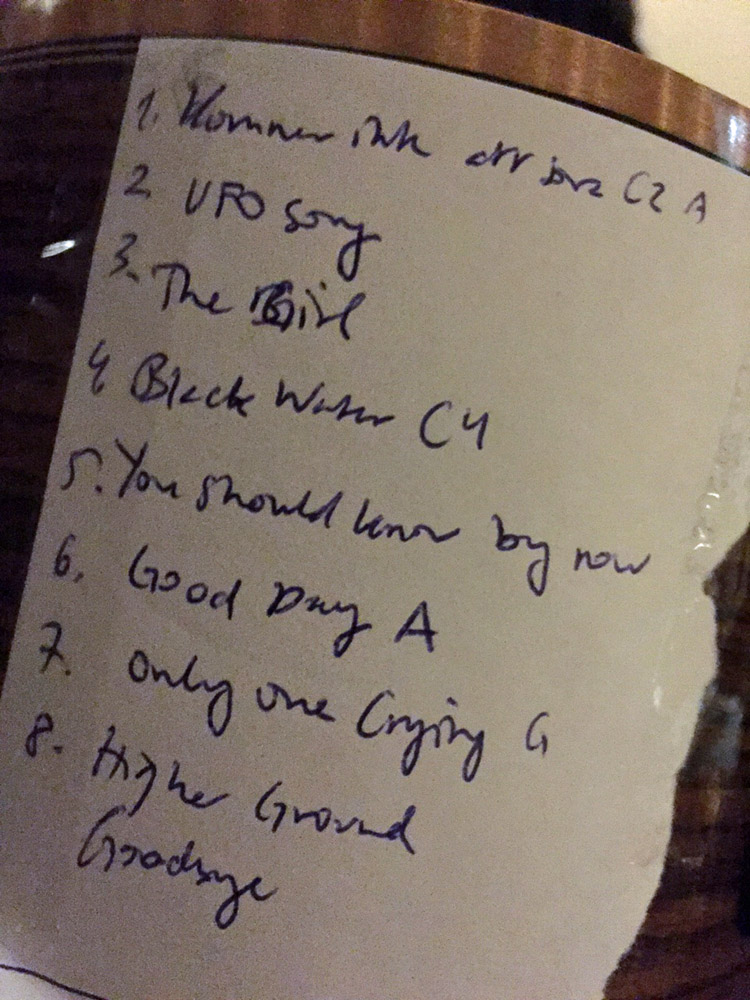 1. Kommer inte att C2 A
2 UFO Song
3. The Girl
4 Black Water C4
5. You should know by now
6. Good Day A
7. Only one Crying G
8. Higher Ground
Goodbye